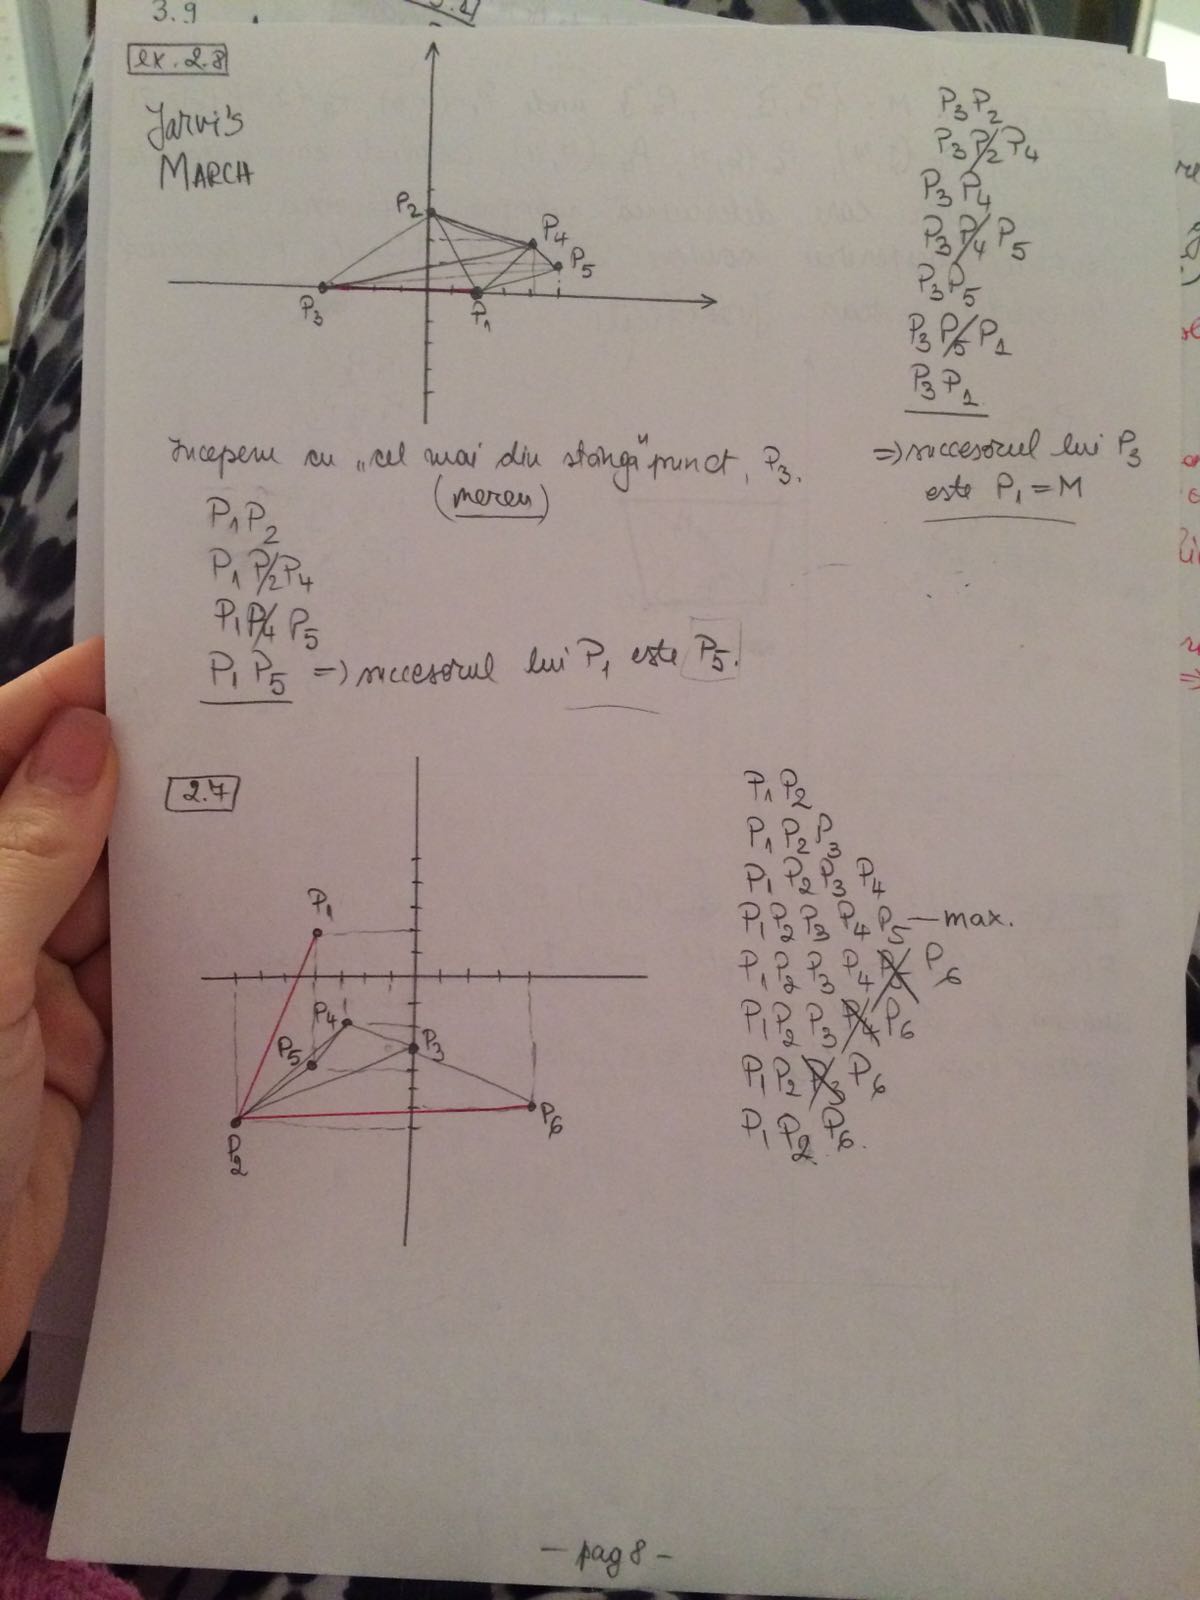 3.9
ex. 2.8
Jarvi's
MARCH
P2
P4
P5
P3
P1
P3P2
P3P2P4
P3P4
P3P4P5
P3P5
P3P5P1
P3P1
Începem cu „cel mai din stânga" punct, P3.
(mereu)
=> succesorul lui P3
este P1 = M
P1P2
P1P2P4
P1P4P5
P1P5 => succesorul lui P1 este P5.
2.7
P1
P4
P5
P3
P2
P6
P1P2
P1P2P3
P1P2P3P4
P1P2P3P4P5 — max.
P1P2P3P4P5P6
P1P2P3P4P6
P1P2P3P6
P1P2P6.
— pag 8 —